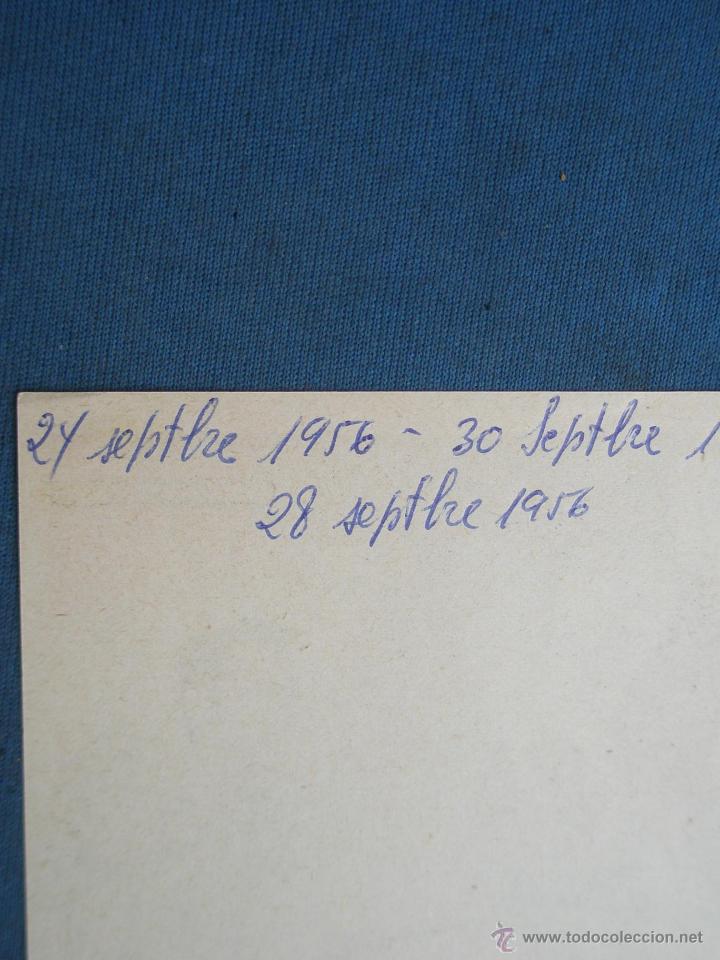 24 septbre 1956 - 30 Septbre 1
28 septbre 1956
www.todocoleccion.net